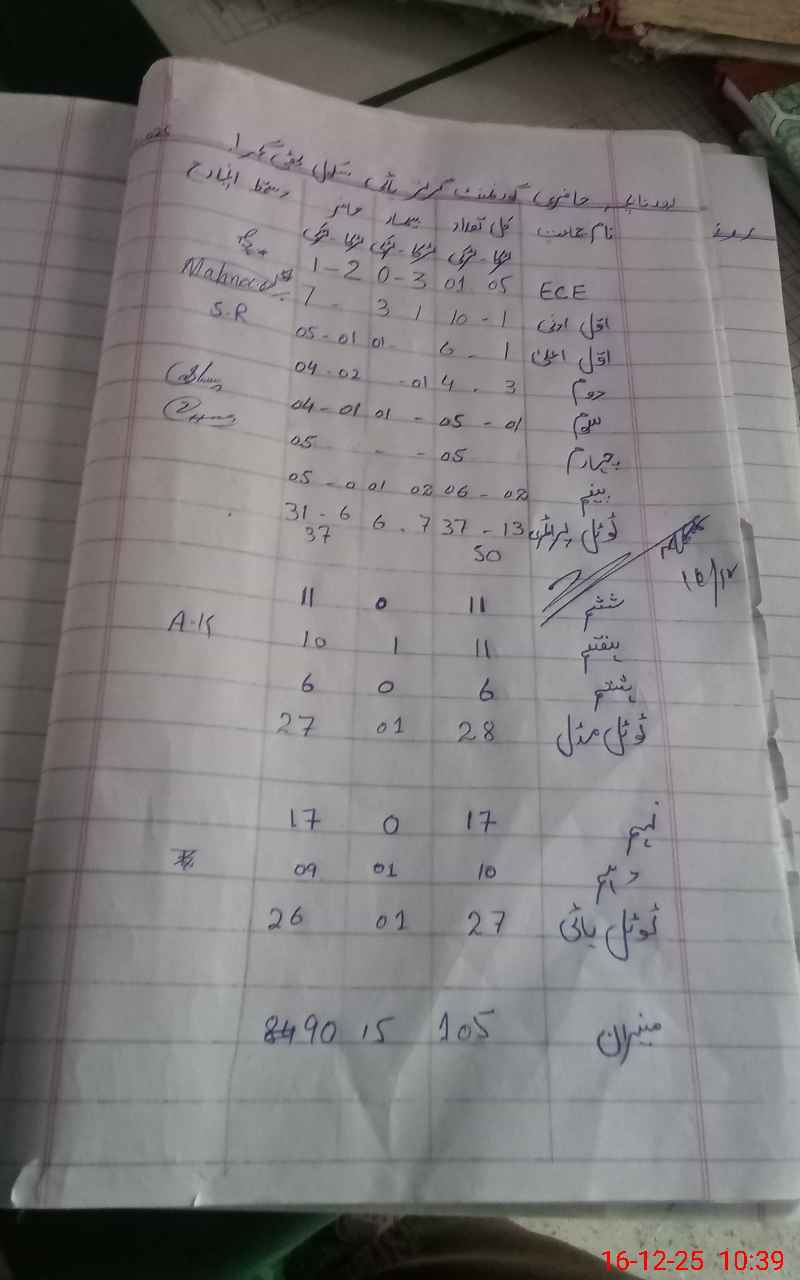 روزنامہ حاضری گورنمنٹ گرلز ہائی سکول
نام جماعت کل تعداد بیمار حاضر دستخط انچارج
لڑکا - لڑکی لڑکا - لڑکی لڑکا - لڑکی
ECE 05 01 0 - 3 1 - 2
اول ادنیٰ 10 - 1 3 1 7 - Mahnoor
اول اعلیٰ 6 - 1 01 - 05 - 01 S.R
دوم 4 . 3 - 01 04 - 02
سوم 05 - 01 01 - 04 - 01
چہارم - 05 - - 05
پنجم 06 - 02 01 02 05 - 0
ٹوٹل پرائمری 37 - 13 6 . 7 31 - 6
50 37
16/12
ششم 11 0 11
ہفتم 11 1 10 A.K
ہشتم 6 0 6
ٹوٹل مڈل 28 01 27
نہم 17 0 17
دہم 10 01 09
ٹوٹل ہائی 27 01 26
میزان 105 15 90
16-12-25 10:39